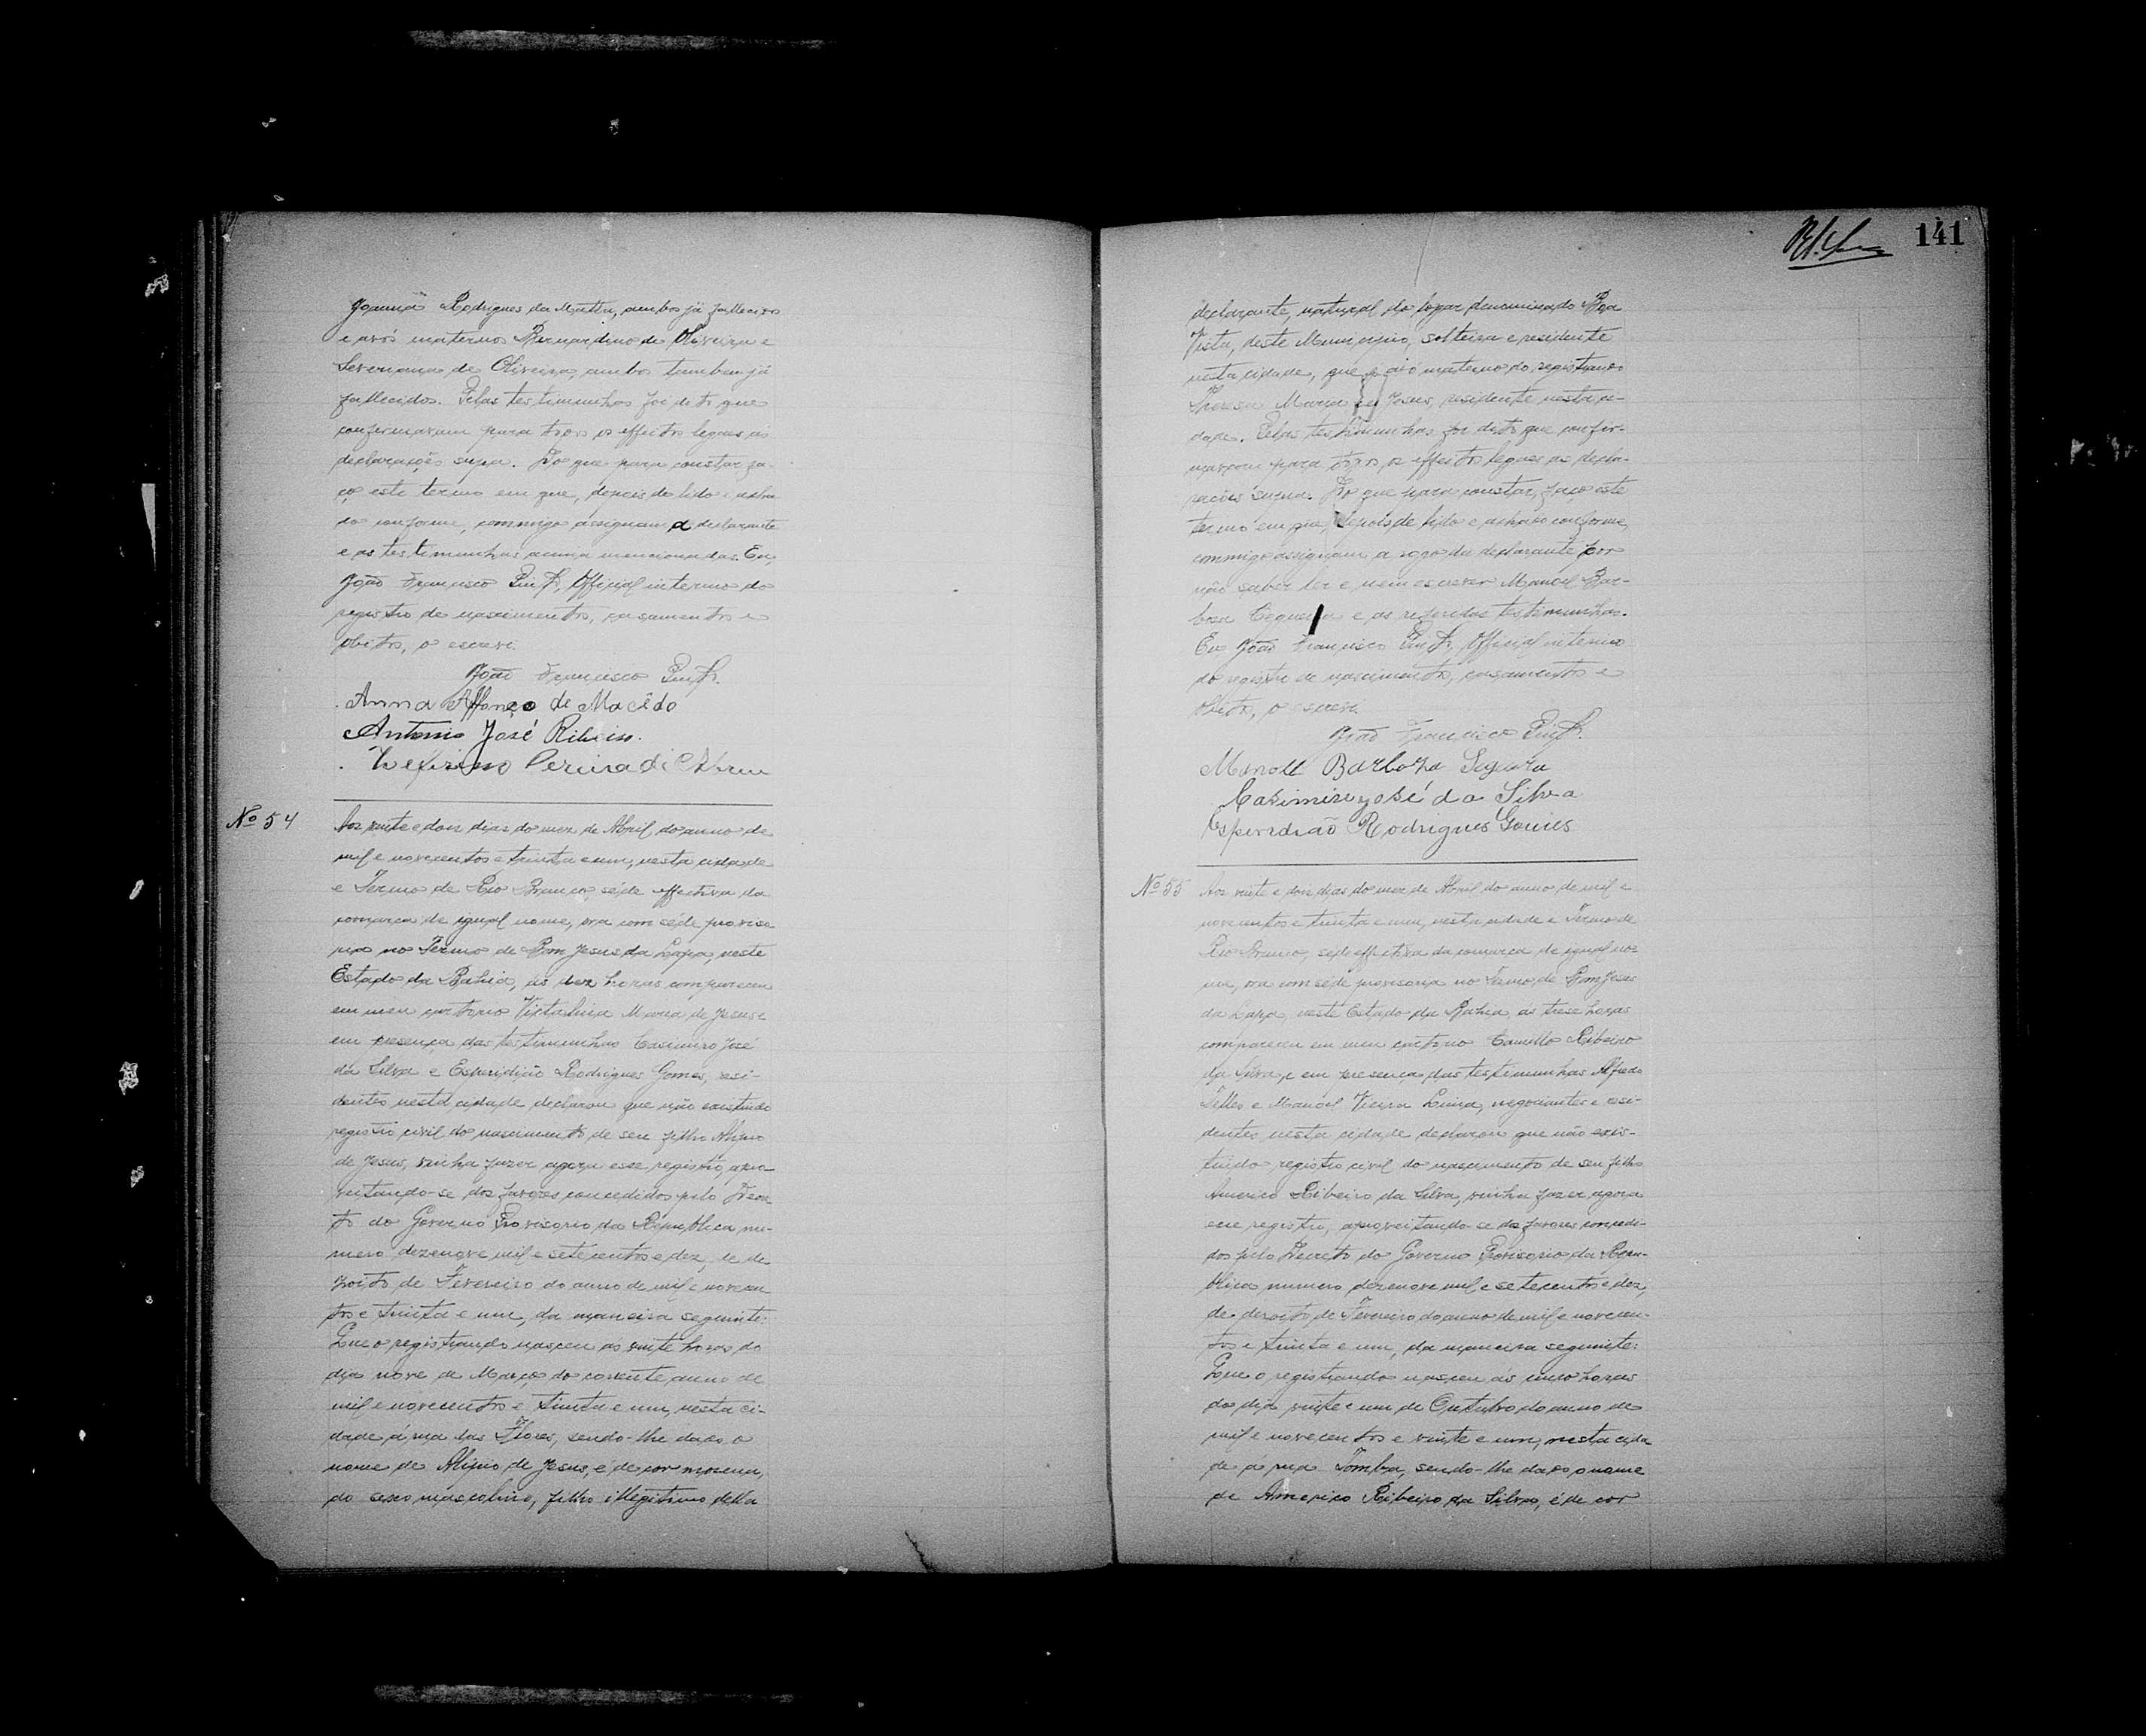 Joanna Rodrigues da Matta, ambos já fallecidos
e avós maternos Bernardino de Oliveira e
Severiana de Oliveira, ambos tambem já
fallecidos. Pelas testimunhas foi dito que
confirmavam para todos os effeitos legaes as
declarações supra. Do que para constar fa-
ço este termo em que, depois de lido e acha
do conforme, commigo assignam a declarante
e as testimunhas acima mencionadas. Eu,
João Francisco Pinto, Official interino do
registro de nascimentos, casamentos e
obitos, o escrevi.
João Francisco Pinto.
Anna Affonço de Macêdo
Antonio José Ribeiro.
Pereira de Abreu
Nº 54
Aos vinte e dois dias do mez de Abril do anno de
mil e novecentos e trinta e um, nesta cidade
e Termo de Rio Branco, séde effectiva da
comarca de egual nome, ora com séde proviso
ria no Termo de Bom Jesus da Lapa, neste
Estado da Bahia, ás dez horas compareceu
em meu cartorio Victalina Maria de Jesus e
em presença das testimunhas Casimiro José
da Silva e Esperidião Rodrigues Gomes, resi-
dentes nesta cidade declarou que não existindo
registro civil do nascimento de seu filho Alipio
de Jesus, vinha fazer agora esse registro, apro-
veitando-se dos favores concedidos pelo Decre
to do Governo Provisorio da Republica nu-
mero dezenove mil e setecentos e dez, de de
zoito de Fevereiro do anno de mil e novecen
tos e trinta e um, da maneira seguinte:
Que o registrando nasceu ás vinte horas do
dia nove de Março do corrente anno de
mil e novecentos e trinta e um, nesta ci-
dade á rua das Flores, sendo-lhe dado o
nome de Alipio de Jesus, é de cor morena,
do sexo masculino, filho illegitimo della
141
declarante, natural do logar denominado Boa
Vista, deste Municipio, solteira e residente
nesta cidade, que é avó materna do registrando
Thereza Maria de Jesus, residente nesta ci-
dade. Pelas testimunhas foi dito que confir-
mavam para todos os effeitos legaes as decla-
rações supra. Do que para constar, faço este
termo em que, depois de lido e achado conforme,
commigo assignam a rogo da declarante por
não saber ler e nem escrever Manoel Bar-
boza e as referidas testimunhas.
Eu João Francisco Pinto, Official interino
do registro de nascimentos, casamentos e
obitos, o escrevi.
João Francisco Pinto.
Manoel Barboza
Casimiro José da Silva
Esperidião Rodrigues Gomes
Nº 55
Aos vinte e dois dias do mez de Abril do anno de mil e
novecentos e trinta e um, nesta cidade e Termo de
Rio Branco, séde effectiva da comarca de egual no-
me, ora com séde provisoria no Termo de Bom Jesus
da Lapa, neste Estado da Bahia, ás treze horas
compareceu em meu cartorio Camillo Ribeiro
da Silva, e em presença das testimunhas Alfredo
Telles e Manoel Vieira Lima, negociantes e resi-
dentes nesta cidade declarou que não exis-
tindo registro civil do nascimento de seu filho
Americo Ribeiro da Silva, vinha fazer agora
esse registro, aproveitando-se dos favores concedi-
dos pelo Decreto do Governo Provisorio da Repu-
blica numero dezenove mil e setecentos e dez,
de dezoito de Fevereiro do anno de mil e novecen-
tos e trinta e um, da maneira seguinte:
Que o registrando nasceu ás cinco horas
do dia vinte e um de Outubro do anno de
mil e novecentos e vinte e um, nesta cida
de á rua Tomba, sendo-lhe dado o nome
de Americo Ribeiro da Silva, é de cor